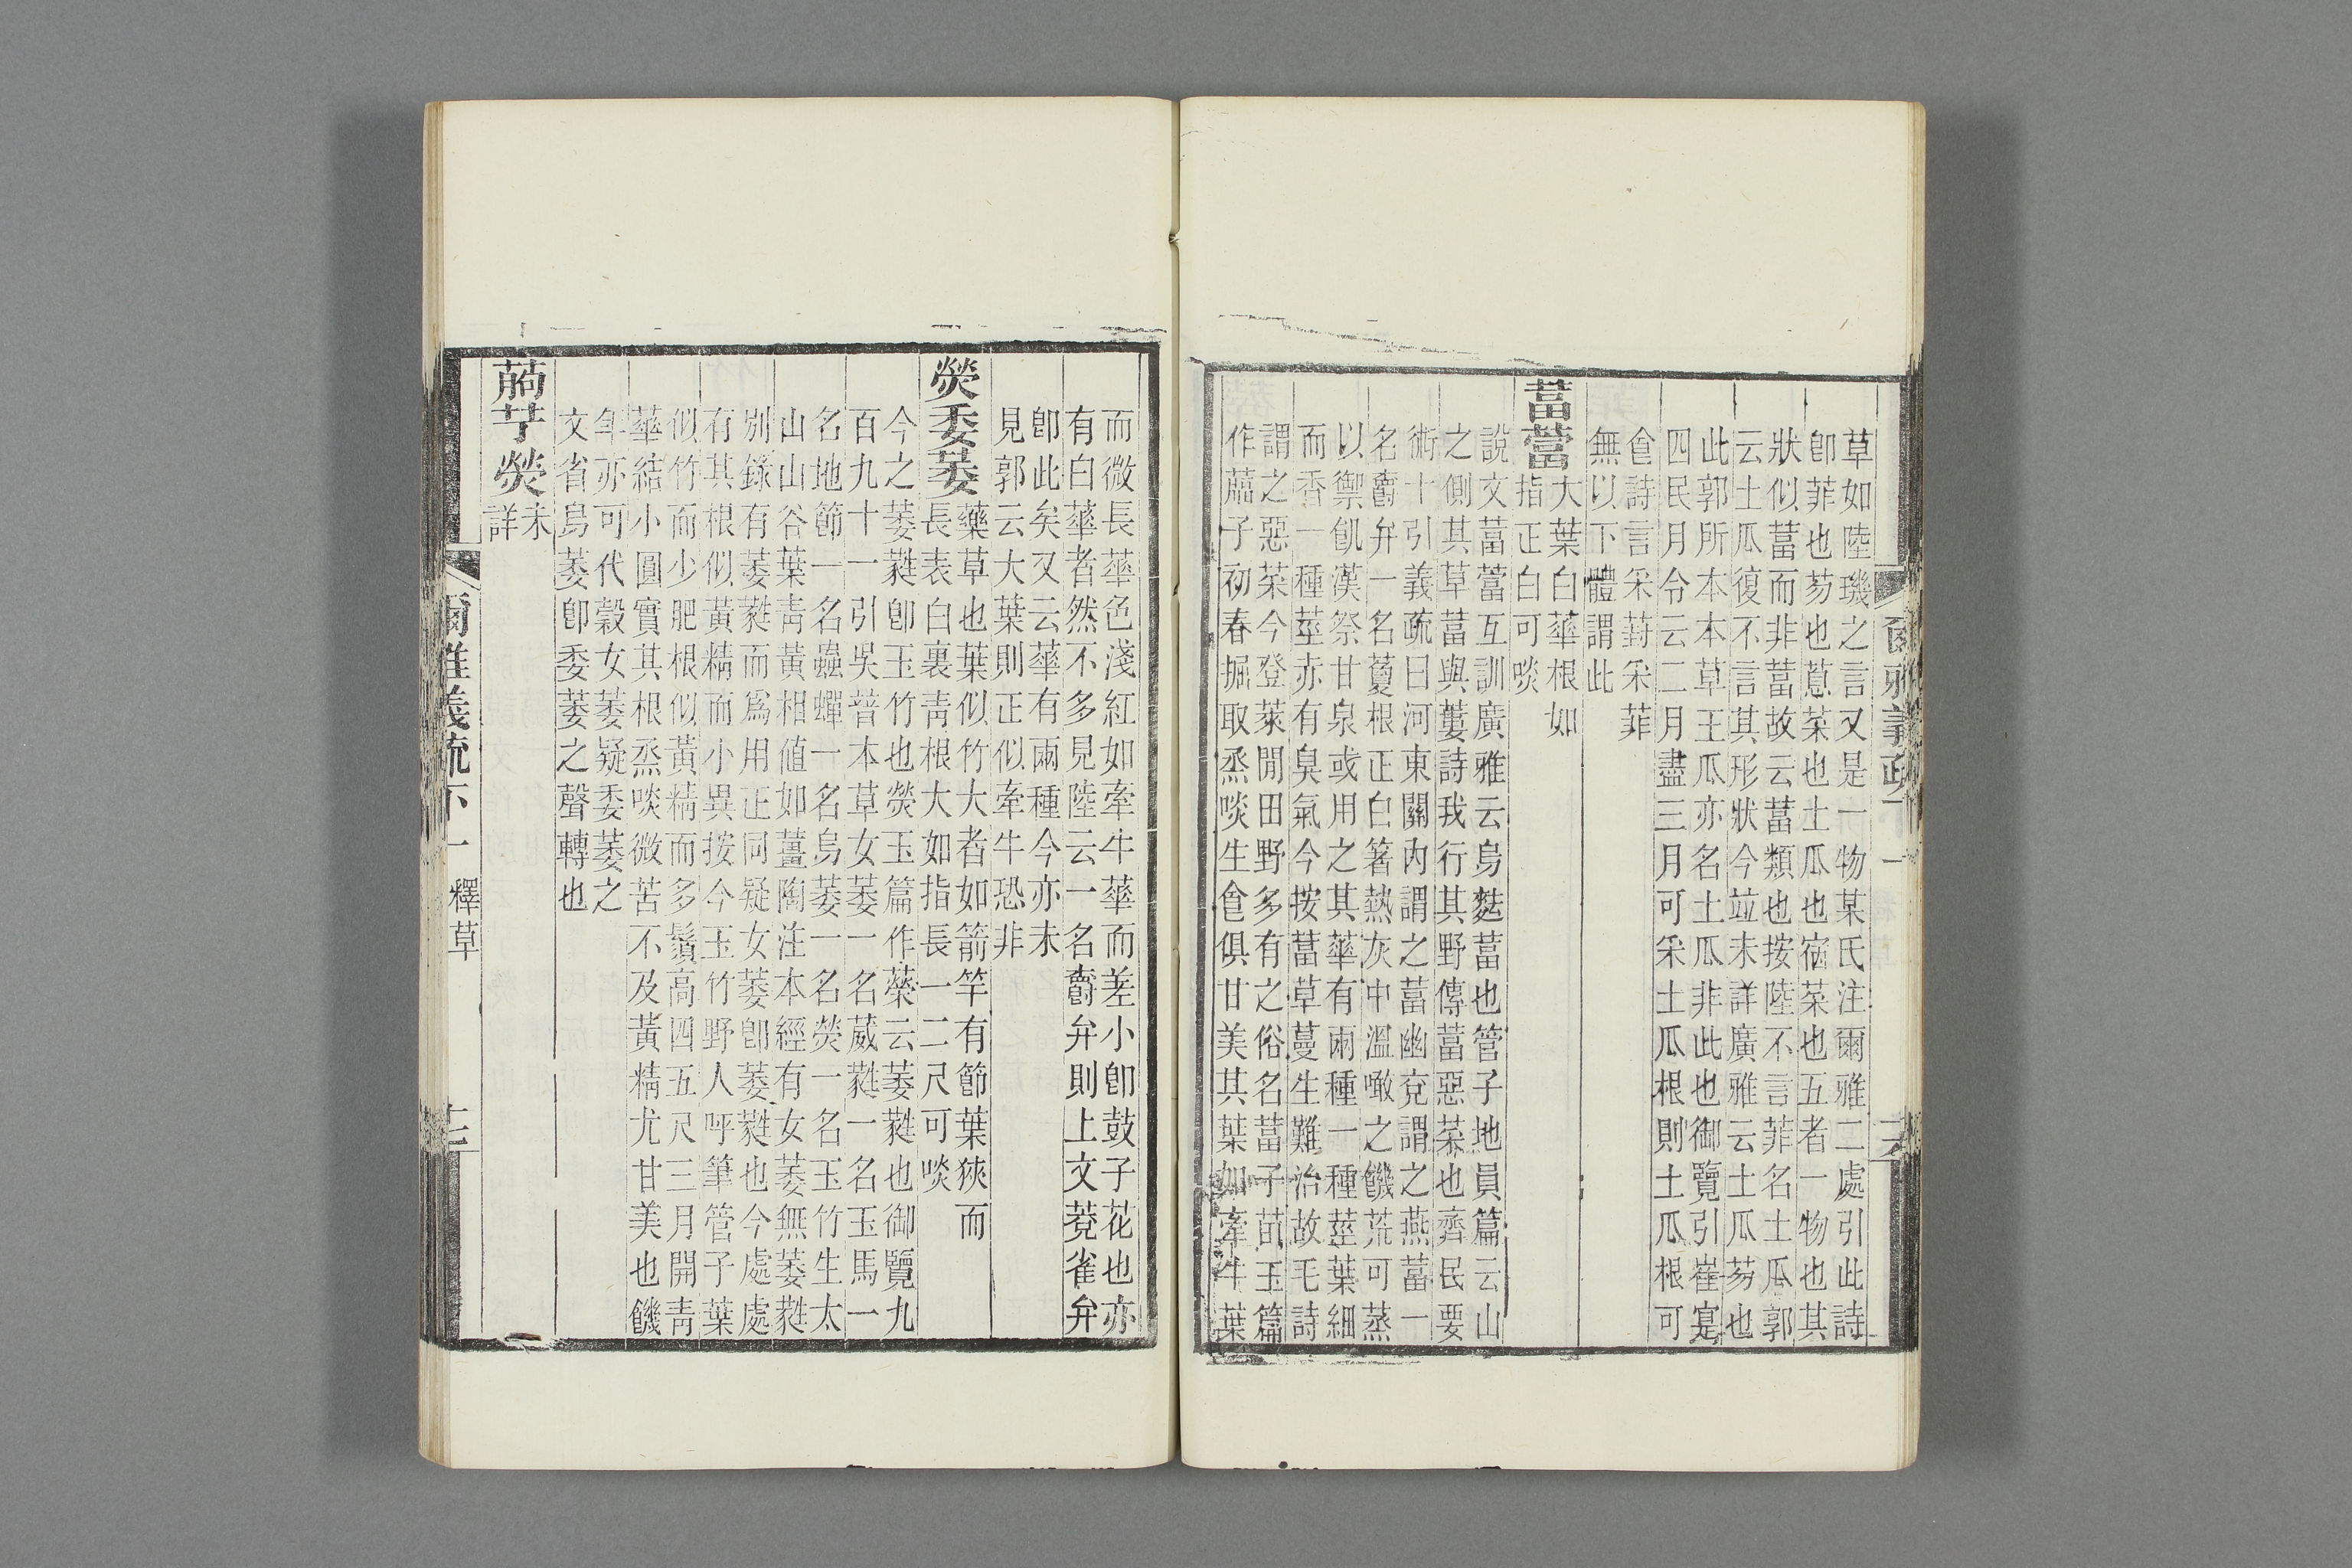 爾雅義疏下一
草如陸璣之言又是一物某氏注爾雅二處引此詩
卽菲也芴也蒠菜也土瓜也宿菜也五者一物也其
狀似葍而非葍故云葍類也按陸不言菲名土瓜郭
云土瓜復不言其形狀今竝未詳廣雅云土瓜芴也
此郭所本本草王瓜亦名土瓜非此也御覽引崔寔
四民月令云二月盡三月可采土瓜根則土瓜根可
食詩言采葑采菲
無以下體謂此
葍䔰大葉白華根如
指正白可啖
說文葍䔰互訓廣雅云烏麩葍也管子地員篇云山
之側其草葍與蔞詩我行其野傳葍惡菜也齊民要
術十引義疏曰河東關內謂之葍幽兗謂之燕葍一
名䕮弁一名藑根正白著熱灰中溫噉之饑荒可蒸
以禦飢漢祭甘泉或用之其華有兩種一種莖葉細
而香一種莖亦有臭氣今按葍草蔓生難治故毛詩
謂之惡菜今登萊閒田野多有之俗名葍子苗玉篇
作藟子初春掘取烝啖生食俱甘美其葉如牽牛葉
而微長華色淺紅如牽牛華而差小卽鼓子花也亦
有白華者然不多見陸云一名䕮弁則上文藑雀弁
卽此矣又云華有兩種今亦未
見郭云大葉則正似牽牛恐非
熒委萎藥草也葉似竹大者如箭竿有節葉狹而
長表白裏靑根大如指長一二尺可啖
今之萎蕤卽玉竹也熒玉篇作䔅云萎蕤也御覽九
百九十一引吳普本草女萎一名葳蕤一名玉馬一
名地節一名蟲蟬一名烏萎一名熒一名玉竹生太
山山谷葉靑黃相值如薑陶注本經有女萎無萎蕤
別錄有萎蕤而爲用正同疑女萎卽萎蕤也今處處
有其根似黃精而小異按今玉竹野人呼筆管子葉
似竹而少肥根似黃精而多鬚高四五尺三月開靑
華結小圓實其根烝啖微苦不及黃精尤甘美也饑
年亦可代穀女萎疑委萎之
文省烏萎卽委萎之聲轉也
葋艼熒未
詳
爾雅義疏下一 釋草